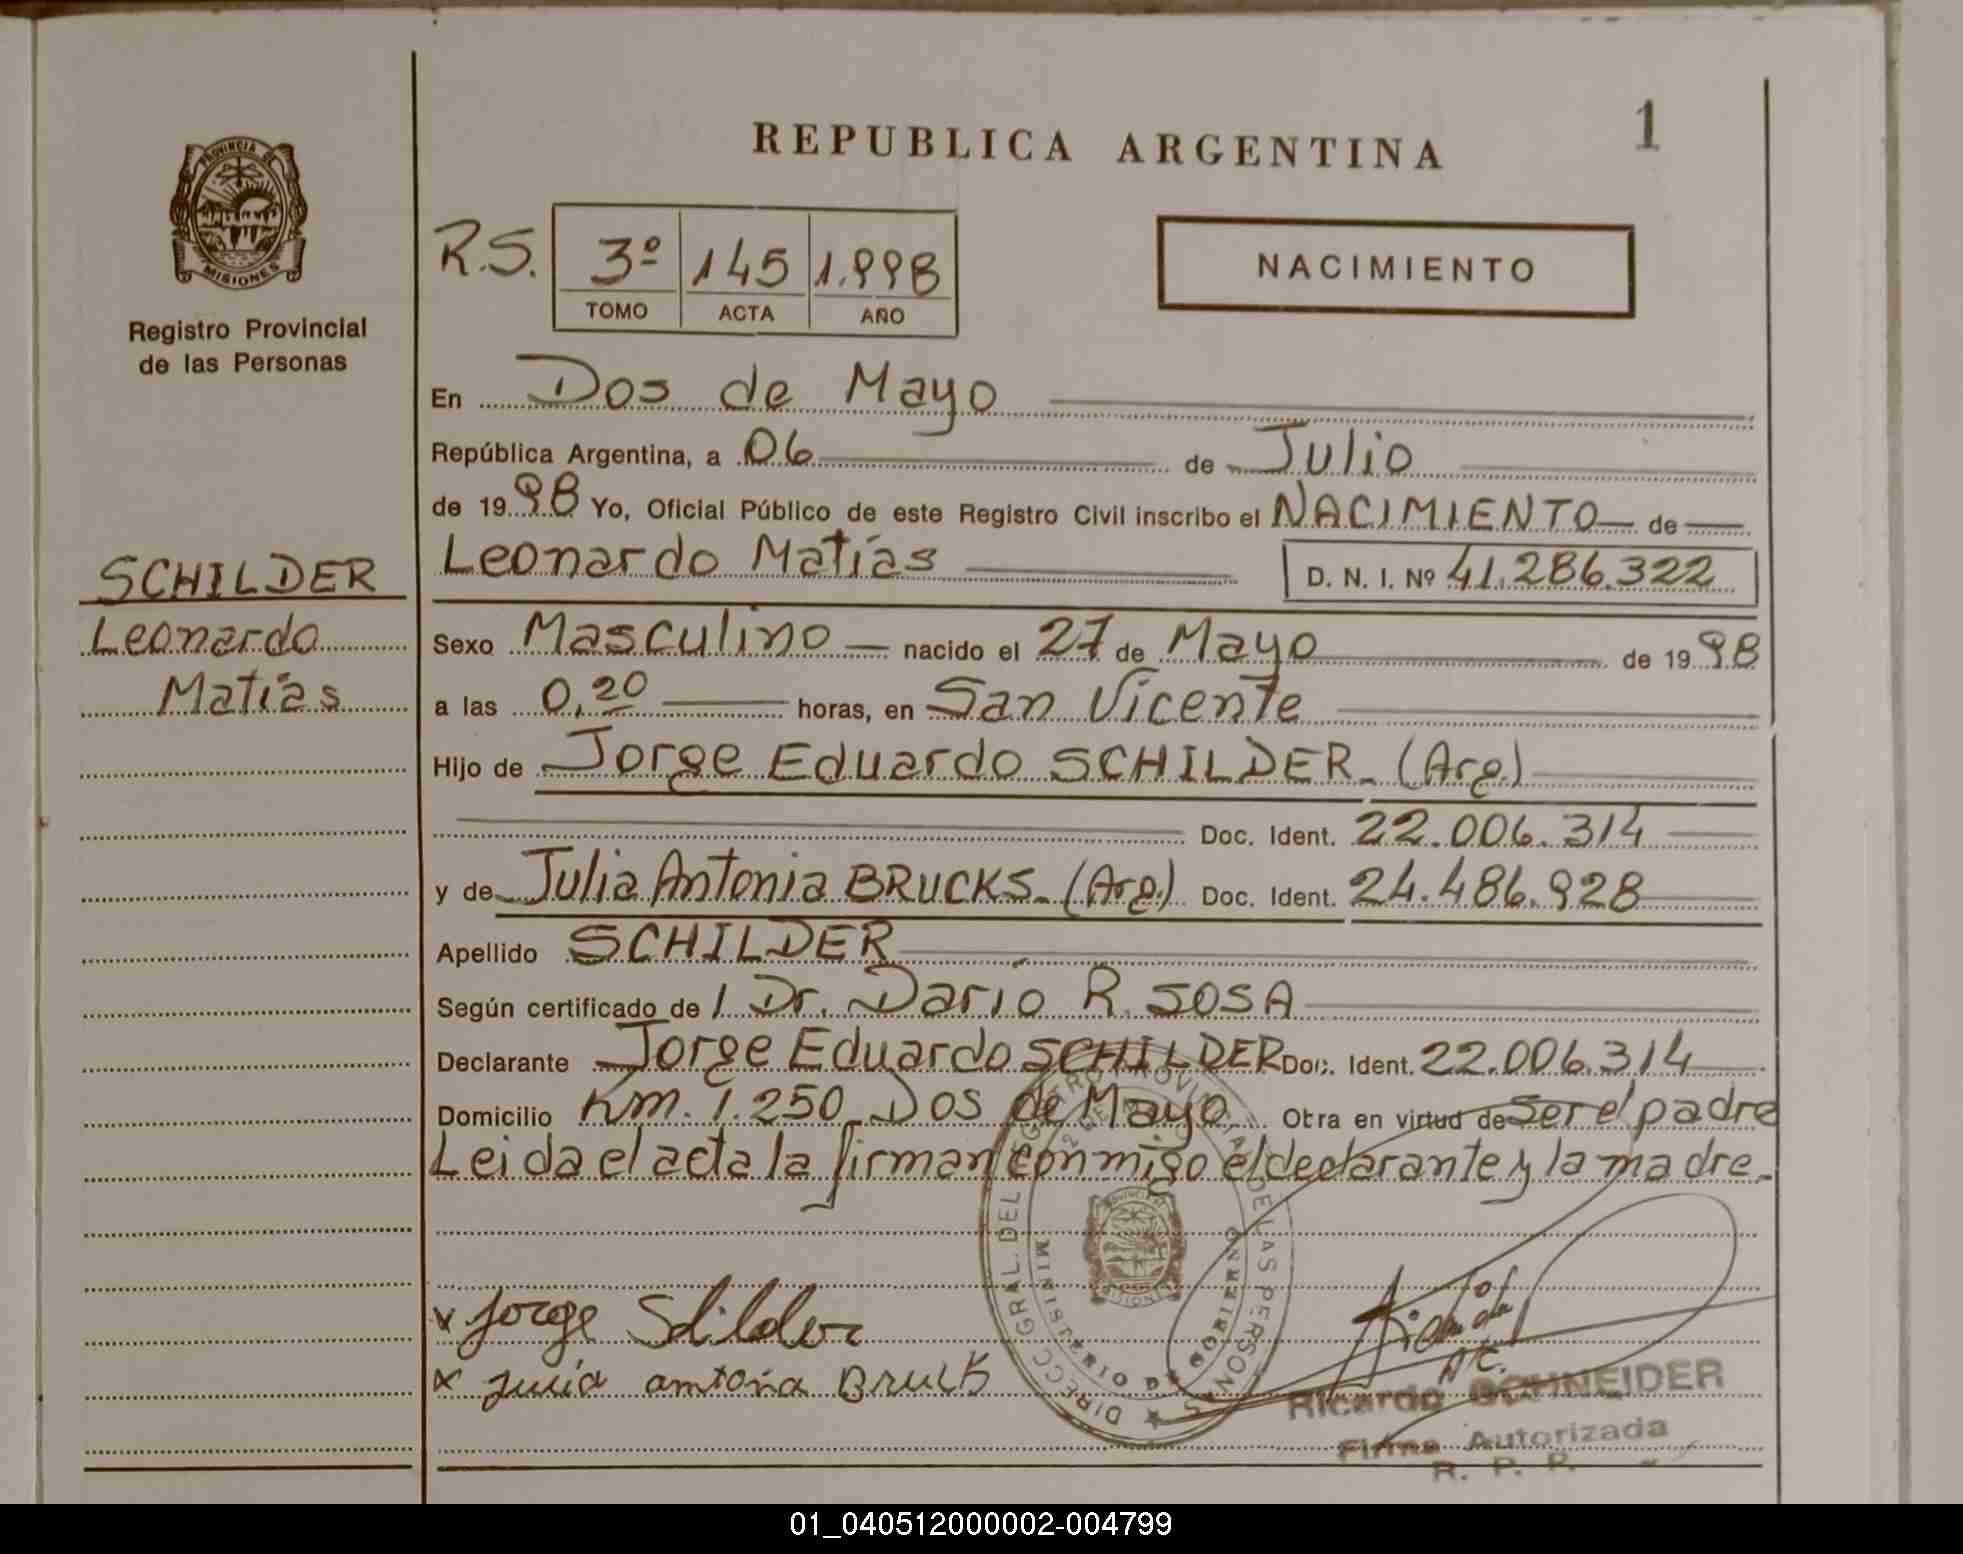 REPUBLICA ARGENTINA
1
PROVINCIA DE
MISIONES
Registro Provincial
de las Personas
R.S. 3º 145 1.998
TOMO ACTA AÑO
NACIMIENTO
En Dos de Mayo
República Argentina, a 06 de Julio
de 1998 Yo, Oficial Público de este Registro Civil inscribo el NACIMIENTO de
Leonardo Matías D. N. I. Nº 41.286.322
SCHILDER
Leonardo
Matías
Sexo Masculino nacido el 27 de Mayo de 1998
a las 0,20 horas, en San Vicente
Hijo de Jorge Eduardo SCHILDER. (Arg.)
Doc. Ident. 22.006.314
y de Julia Antonia BRUCKS. (Arg.) Doc. Ident. 24.486.928
Apellido SCHILDER
Según certificado de 1. Dr. Darío R. SOSA
Declarante Jorge Eduardo SCHILDER Doc. Ident. 22.006.314
Domicilio Km. 1.250 Dos de Mayo Otra en virtud de ser el padre
Leida el acta la firman conmigo el declarante y la madre.
DIRECC. GRAL. DEL REGISTRO PROVINCIAL DE LAS PERSONAS
MINISTERIO DE GOBIERNO
x Jorge Schilder
x Julia antonia Bruck
Ricardo SCHNEIDER
Firma Autorizada
R. P. P.
01_040512000002-004799